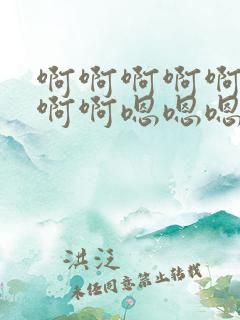 啊啊啊啊啊
啊啊嗯嗯嗯
洪泛
未经同意禁止转载